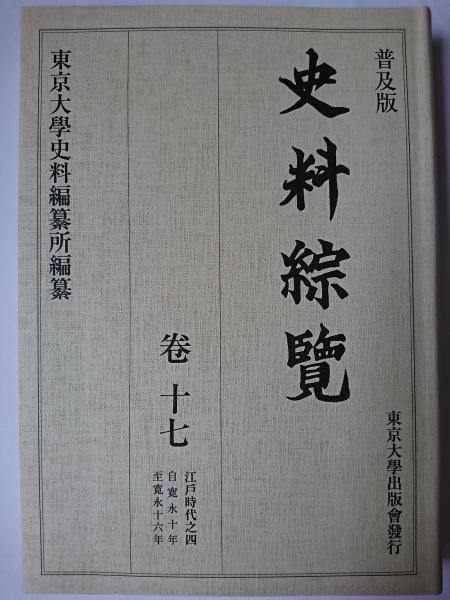 普及版
史料綜覽
東京大學出版會發行
卷十七
江戶時代之四
自寬永十年
至寬永十六年
東京大學史料編纂所編纂